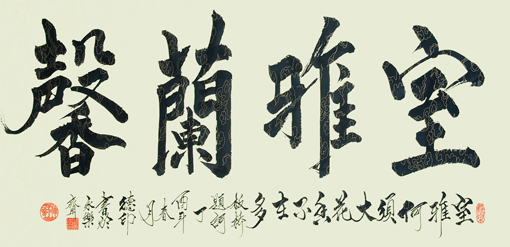 室雅蘭馨
室雅何須大花香不在多板橋題詞丁酉年春月德印書於永樂